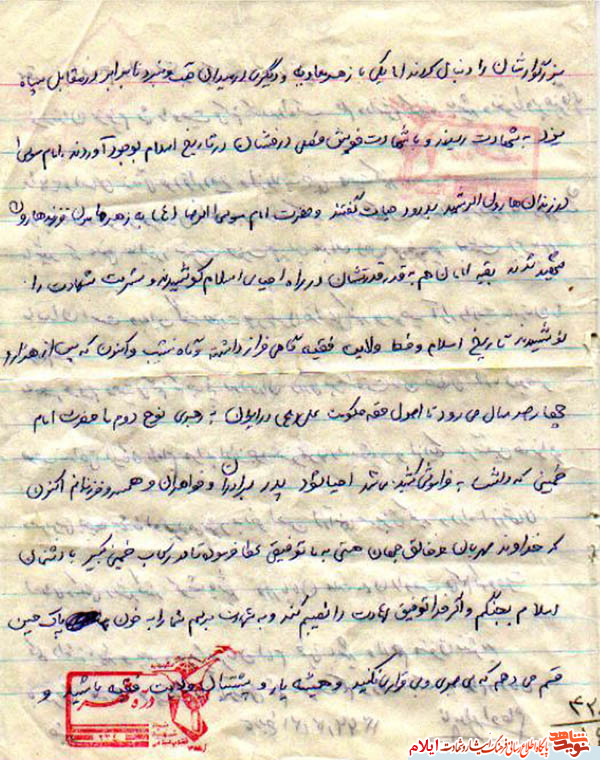 بزرگوارشان را دنبال کردند اما یکی با زهر معاویه و دیگری در میدان جنگ و نبرد نابرابر در مقابل سپاه
یزید به شهادت رسیدند و با شهادت خویش فصلی درخشان در تاریخ اسلام بوجود آوردند. امام موسی
در زندان هارون الرشید بدرود حیات گفتند و حضرت امام موسی الرضا (ع) به زهر مامون فرزند هارون
شهید شدند بقیه امامان هم به قدر قدرتشان در راه احیای اسلام کوشیدند و شربت شهادت را
نوشیدند تاریخ اسلام و خط ولایت فقیه گاهی فراز داشته و گاه نشیب و اکنون که پس از هزار و
چهار صد سال می رود تا اصول حقه حکومت علی در ایران به رهبری نوح دوم با حضرت امام
خمینی که داشت به فراموشی کشیده می شد احیا شود پدر برادران و خواهران و همسر و فرزندانم اکنون
که خداوند مهربان و خالق جهان هستی به ما توفیق عطا فرموده تا در رکاب خمینی کبیر با دشمنان
اسلام بجنگم و اگر خدا توفیق شهادت را نصیبم کند و به شهادت برسم شما را به خون پاک حسین
قسم می دهم که بی صبری و بی قراری نکنید و همیشه یار و پشتیبان ولایت فقیه باشید و
دره شهر
۴۲
نوید شاهد
پایگاه اطلاع رسانی فرهنگ ایثار و شهادت ایلام